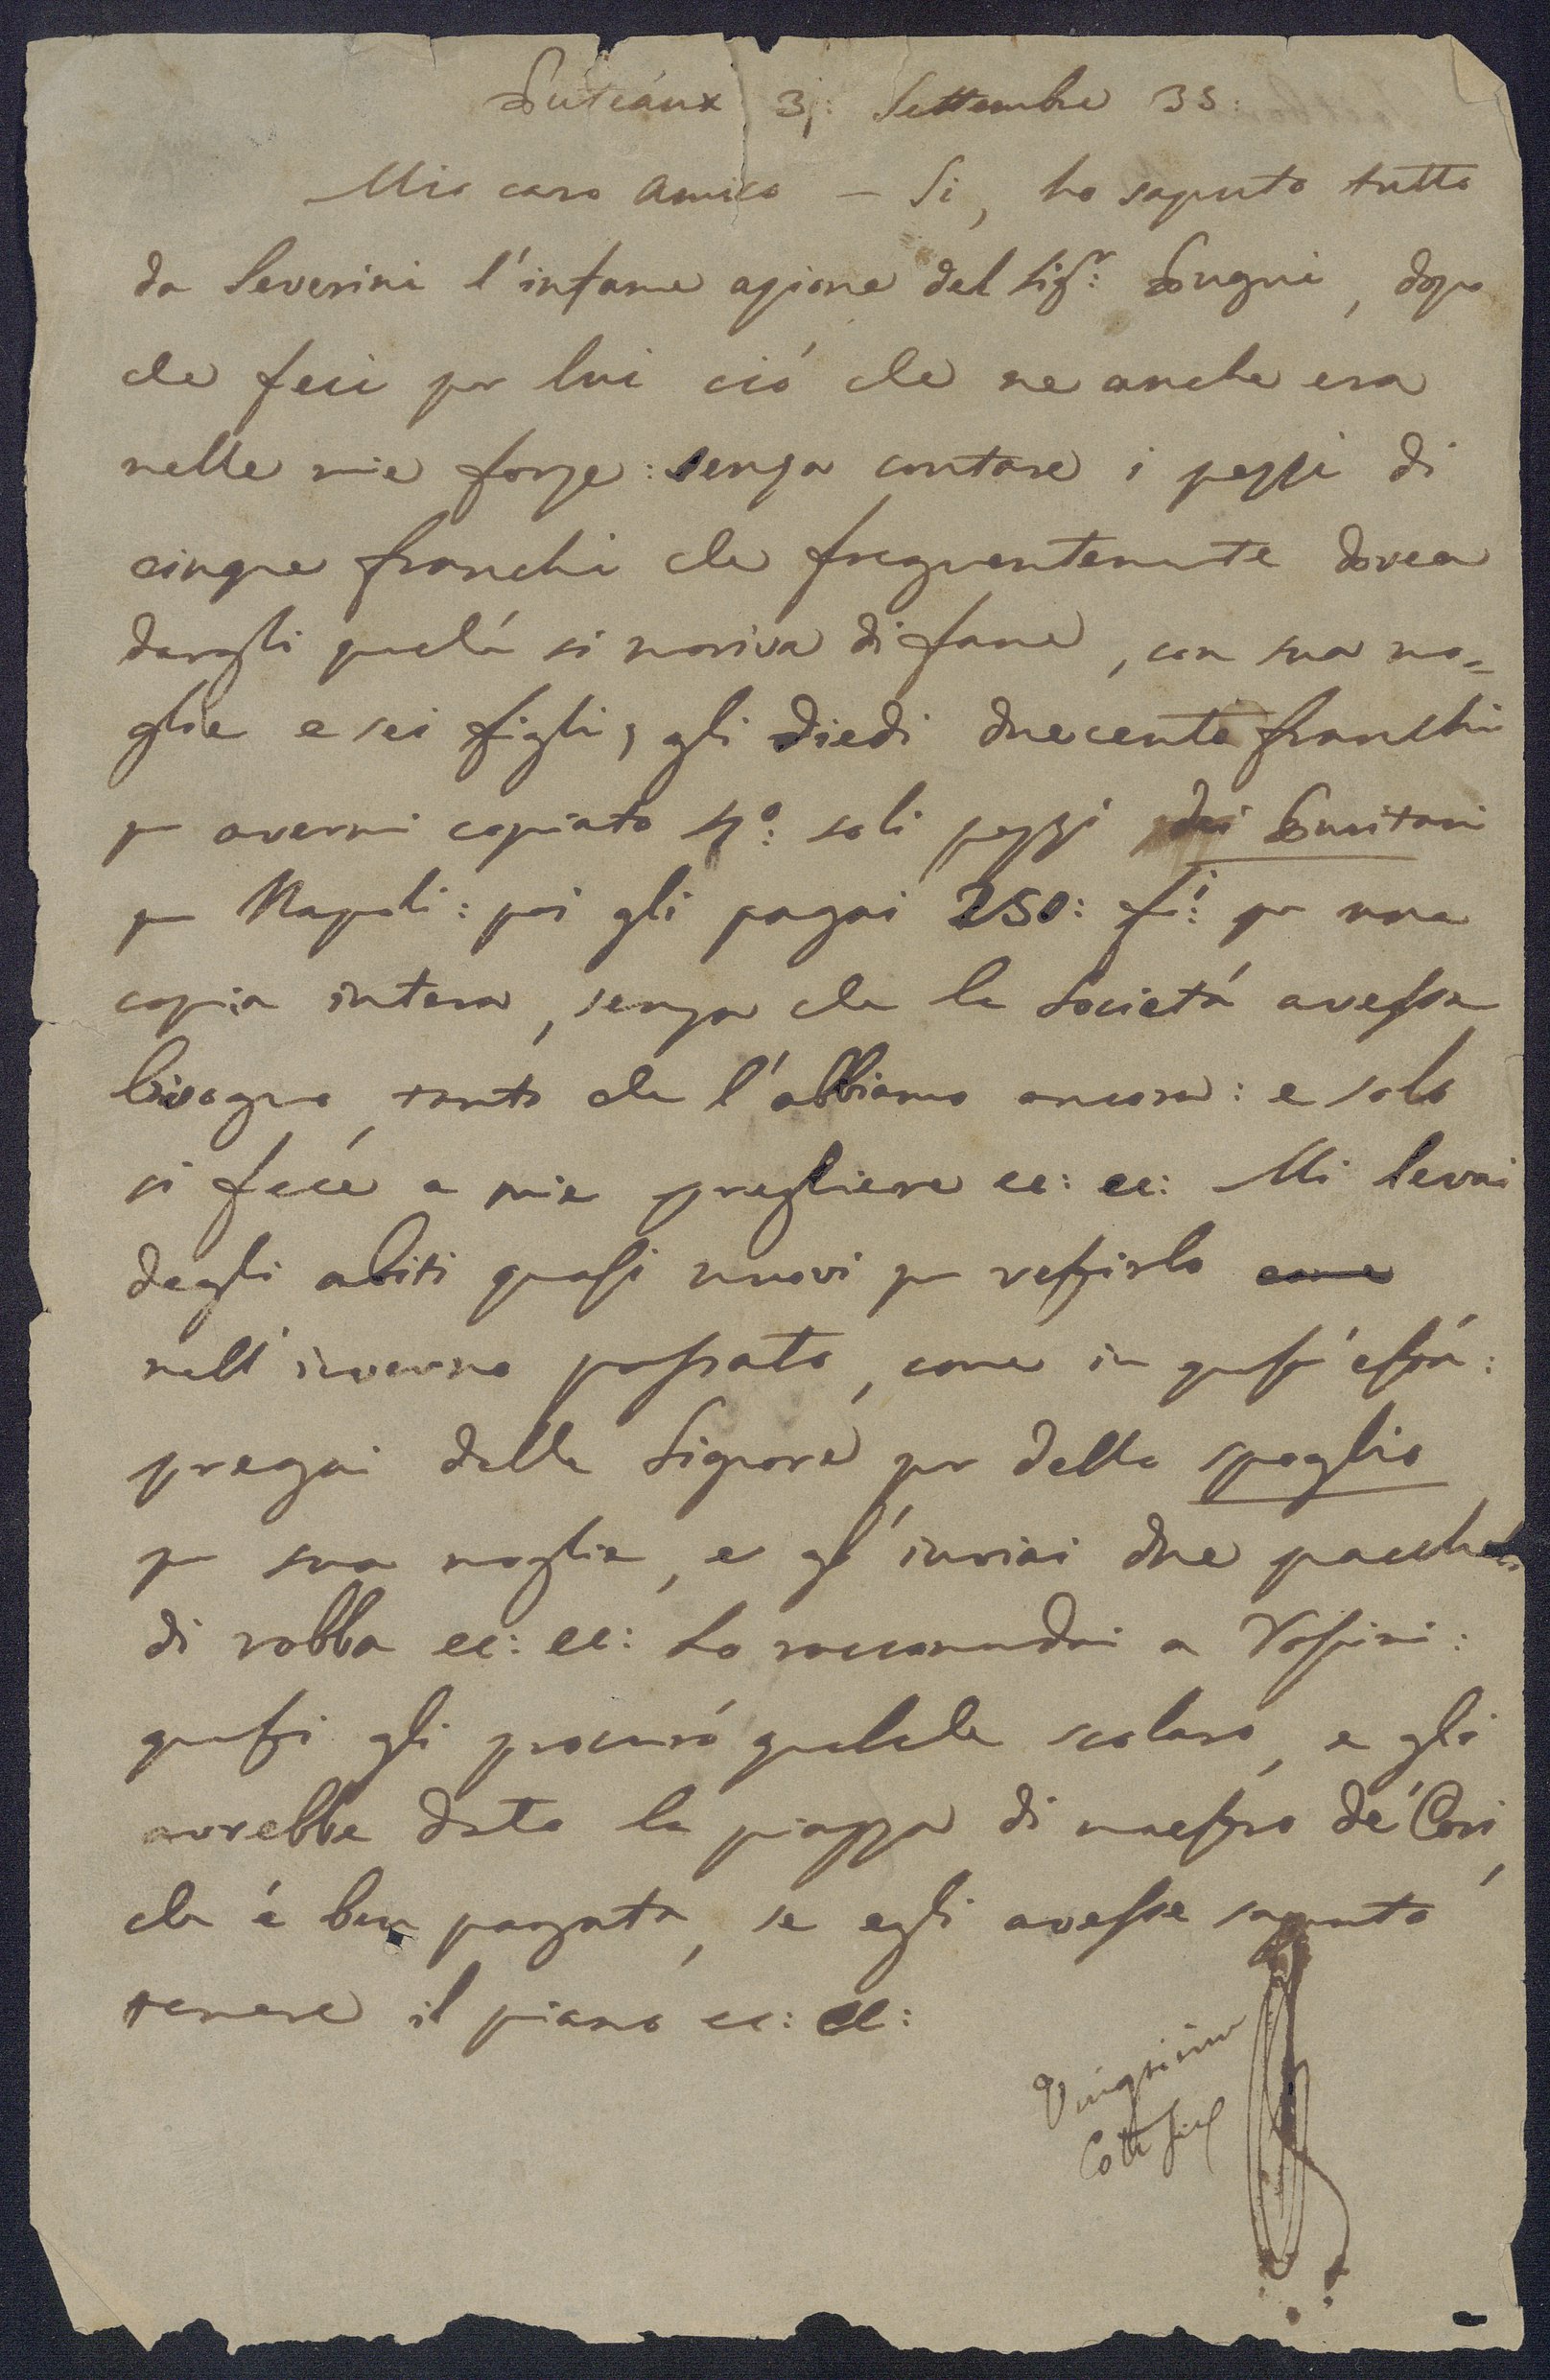 Puteaux 3: Settembre 35:
Mio caro Amico – Si, ho saputo tutto
da Severini l'infame azione del Sigr: Pugni, dopo
che feci per lui ció che ne anche era
nelle mie forze: senza contare i pezzi di
cinque franchi che frequentemente dovea
dargli perché si moriva di fame, con sua mo=
glie e sei figli, gli diedi duecento franchi
per avermi copiato 4o: soli pezzi dei Puritani
per Napoli: poi gli pagai 250: fi: per una
copia intera, senza che la Societá avesse
bisogno, tanto che l'abbiamo ancora: e solo
si fece a mie preghiere ec: ec: Mi levai
degli abiti quasi nuovi per vestirlo come
nell'inverno passato, come in quest'està:
pregai delle Signore per delle spoglie
per sua moglie, e gl'inviai due pacchetti
di robba ec: ec: Lo raccomandai a Rossini:
questi gli procuró qualche scolaro, e gli
avrebbe dato la piazza di maestro de' Cori,
che é ben pagata, se egli avesse saputo
tenere il piano ec: ec: